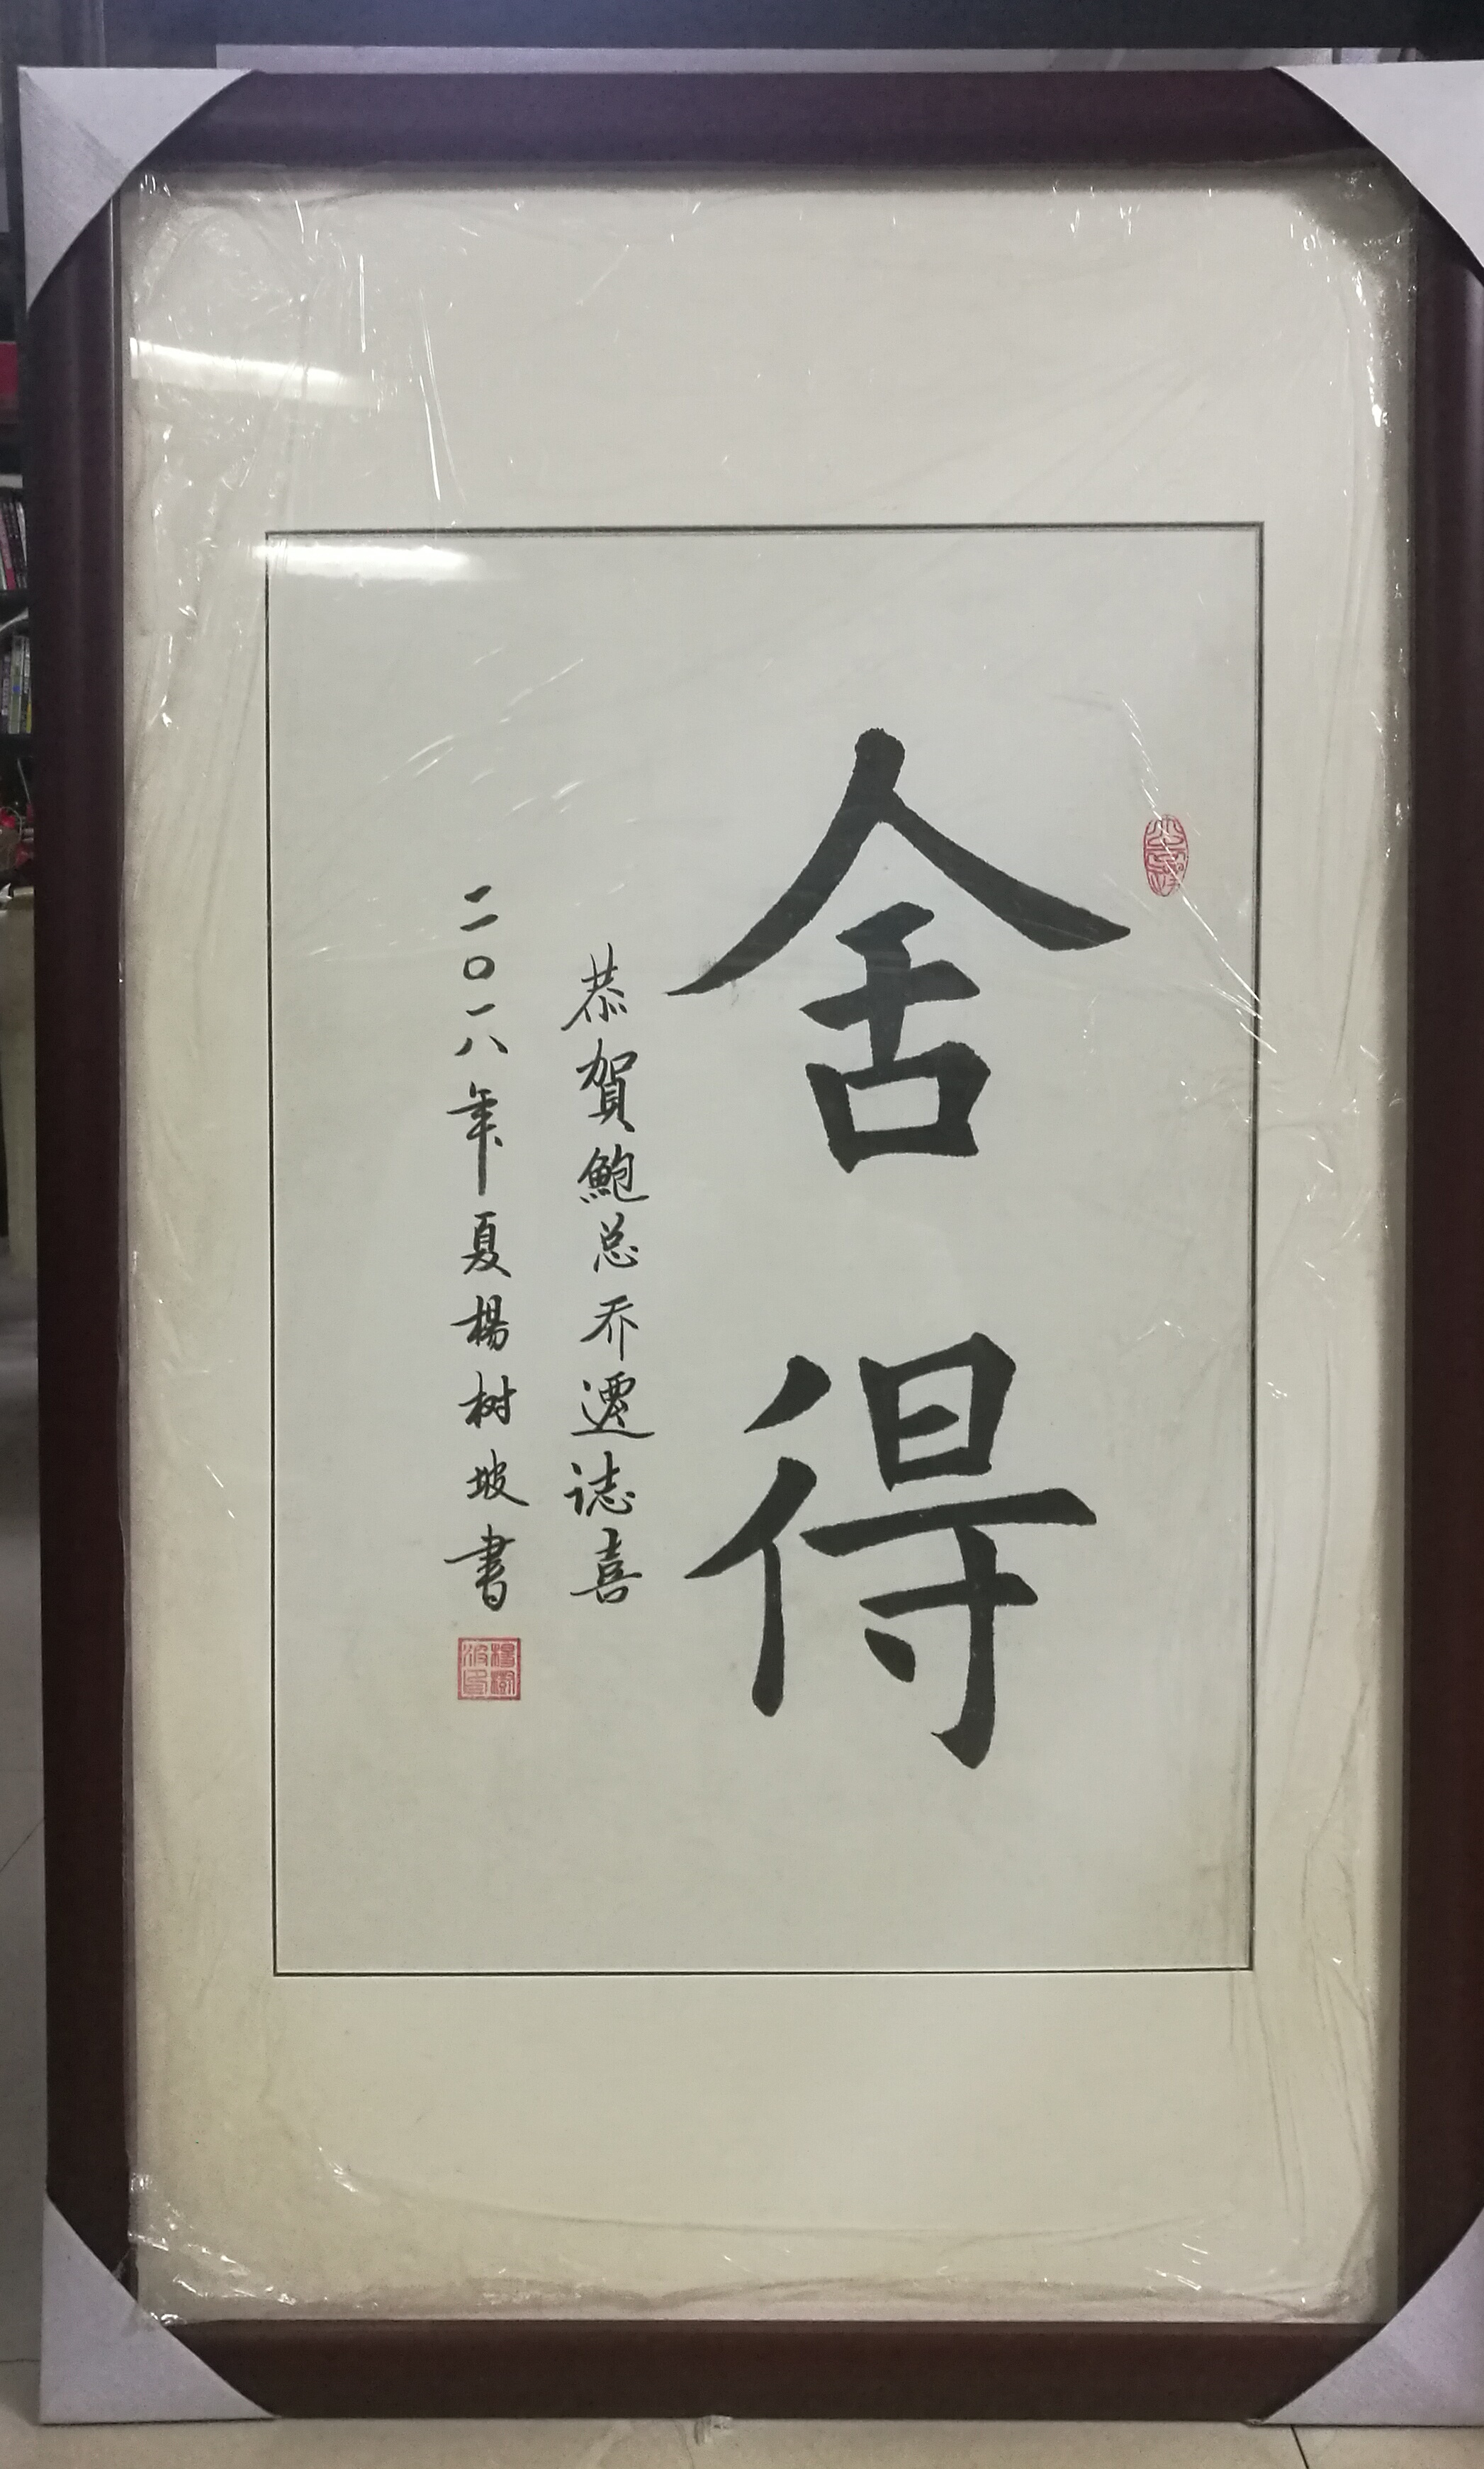 舍得
恭賀鮑总乔遷誌喜
二〇一八年夏楊树坡书
楊樹坡印